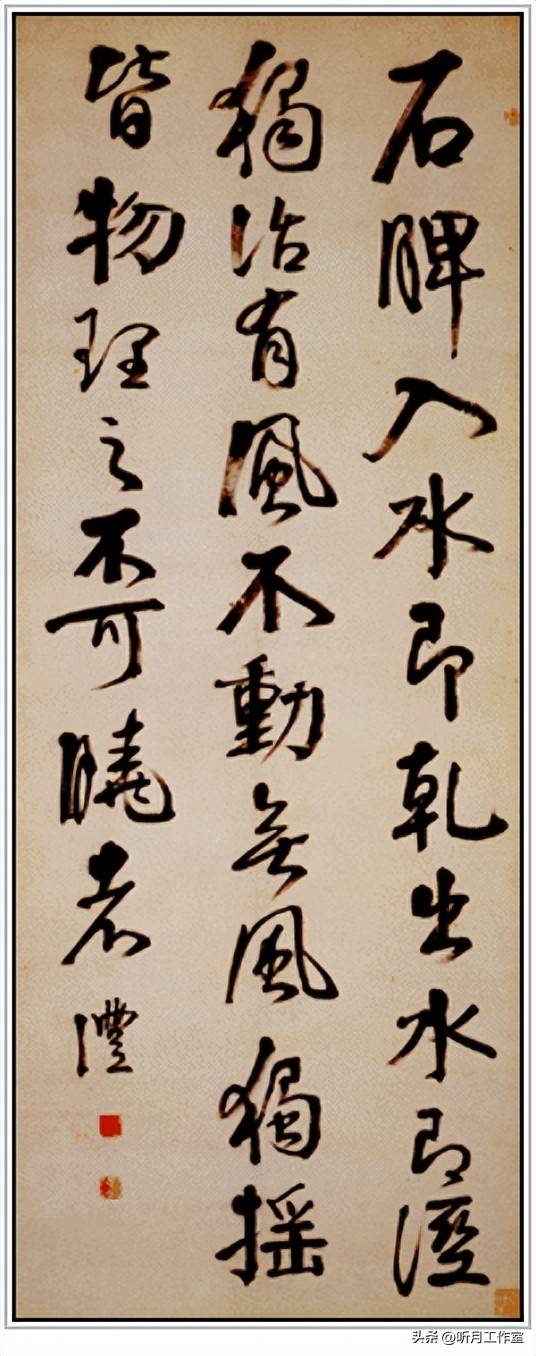 石脾入水即乾出水即溼
獨活有風不動無風獨搖
皆物理之不可曉者 澧
头条 @听月工作室